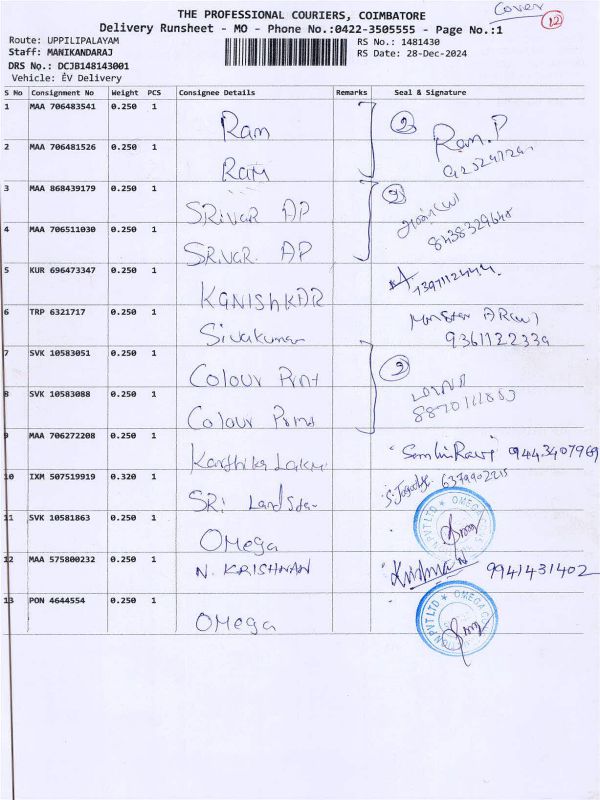 Cover
12
THE PROFESSIONAL COURIERS, COIMBATORE
Delivery Runsheet - MO - Phone No.:0422-3505555 - Page No.:1
Route: UPPILIPALAYAM
RS No.: 1481430
Staff: MANIKANDARAJ
RS Date: 28-Dec-2024
DRS No.: DCJB148143001
Vehicle: EV Delivery
S No Consignment No Weight PCS Consignee Details Remarks Seal & Signature
1 MAA 706483541 0.250 1 Ram 2 Ram.P
2 MAA 706481526 0.250 1 Ram
3 MAA 868439179 0.250 1 SRivaR AP 2
4 MAA 706511030 0.250 1 SRivaR AP 8438329648
5 KUR 696473347 0.250 1 KANISHKAR
6 TRP 6321717 0.250 1 Sivakumar
7 SVK 10583051 0.250 1 Colour Print 2
8 SVK 10583088 0.250 1 Colour Print
9 MAA 706272208 0.250 1 Karthika Lakmi 9443407969
10 IXM 507519919 0.320 1 SRi LandStar 6379902215
11 SVK 10581863 0.250 1 Omega OMEGA
12 MAA 575800232 0.250 1 N. KRISHNAN Krishna N 9941431402
13 PON 4644554 0.250 1 Omega OMEGA